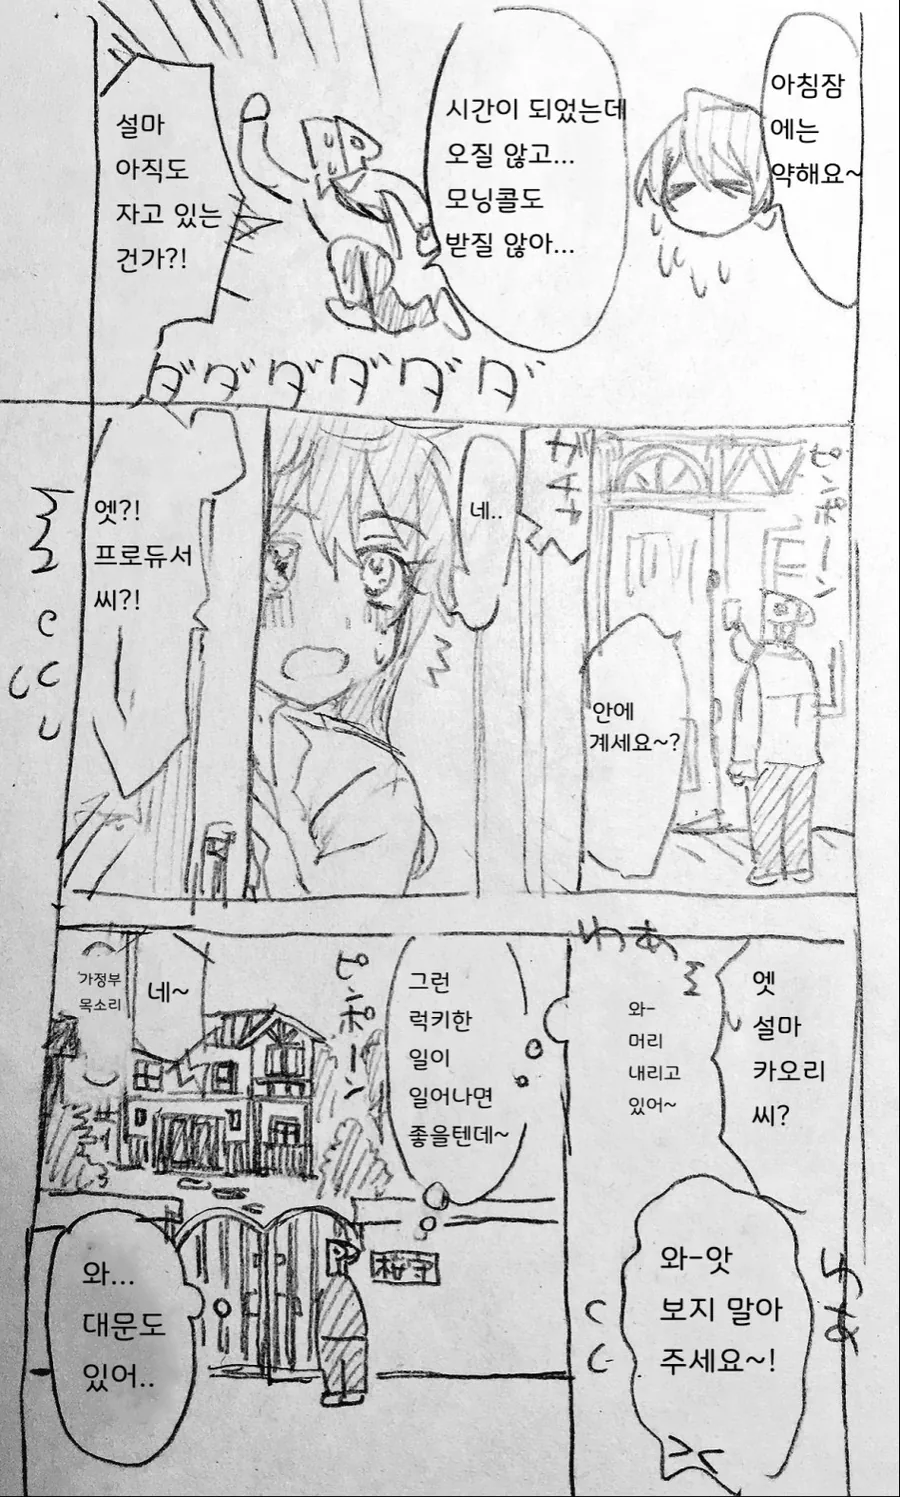 아침잠
에는
약해요~
시간이 되었는데
오질 않고...
모닝콜도
받질 않아...
설마
아직도
자고 있는
건가?!
ダダダダダダ
ピンポーン
안에
계세요~?
ガチャ
네..
엣?!
프로듀서
씨?!
엣
설마
카오리
씨?
わあ
와-
머리
내리고
있어~
와-앗
보지 말아
주세요~!
그런
럭키한
일이
일어나면
좋을텐데~
ピンポーン
네~
가정부
목소리
桜守
와...
대문도
있어..